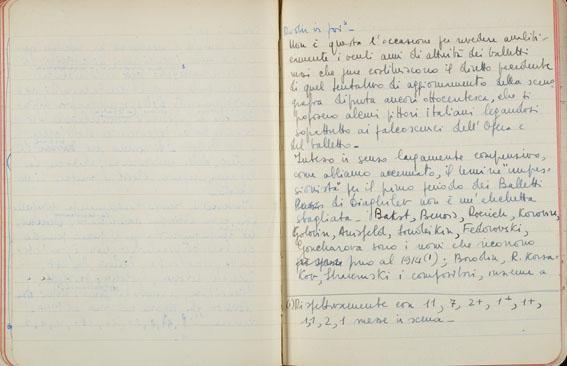 Non è questa l'occasione per rivedere analiti-
camente i venti anni di attività dei balletti
russi che pure costituiscono il diretto precedente
di quel tentativo di aggiornamento della sceno-
grafia dipinta ancora ottocentesca, che si
alcuni pittori italiani legandosi
ai palcoscenici dell'Opera e
del balletto.
Inteso in senso largamente comprensivo,
come abbiamo accennato, il termine "impres-
sionista" per il primo periodo dei Balletti
di Diaghilev non è un'etichetta
sbagliata. Bakst, Benois, Roerich, Korovin,
Golovin, Anisfeld, Soudeikin, Fedorovski,
Gontcharova sono i nomi che ricorrono
fino al 1914(1); Borodin, R. Korsa-
kov, Strawinski i compositori, insieme a
(1) Rispettivamente con 11, 7, 2+, 1+, 1+,
1, 1, 2, 1 messe in scena.